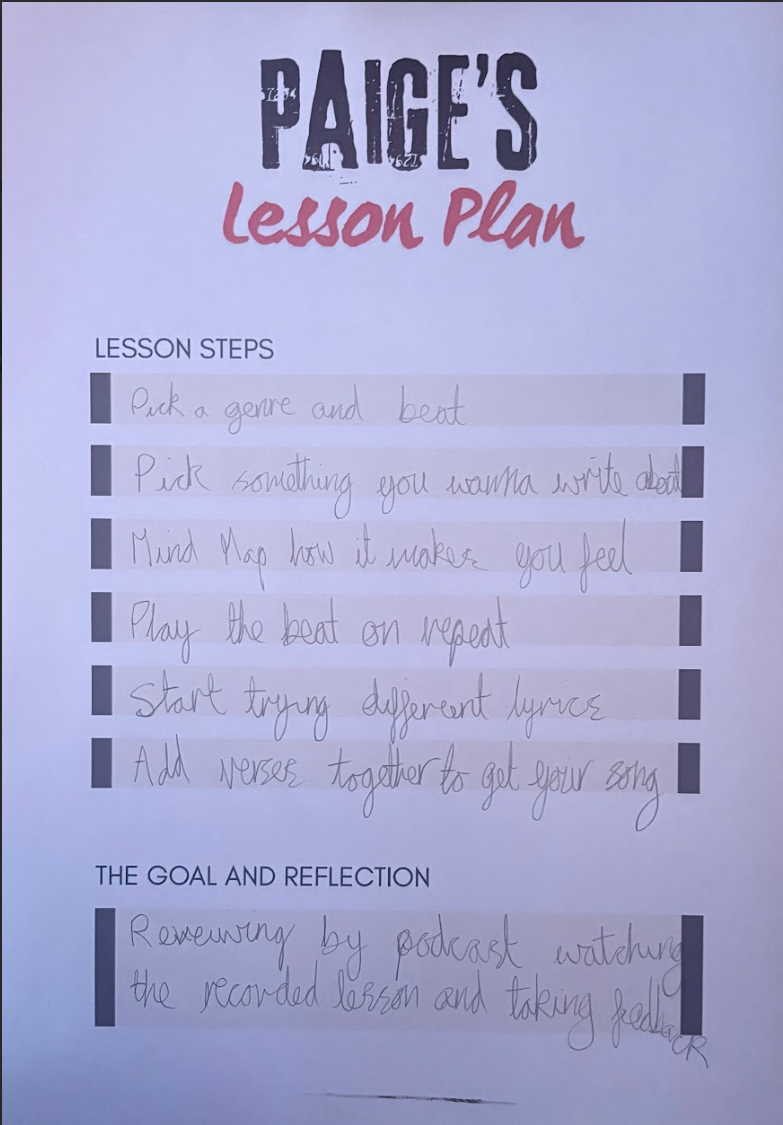 PAIGE'S
Lesson Plan
LESSON STEPS
Pick a genre and beat
Pick something you wanna write about
Mind Map how it makes you feel
Play the beat on repeat
Start trying different lyrics
Add verses together to get your song
THE GOAL AND REFLECTION
Reveiwing by podcast watching
the recorded lesson and taking feedback